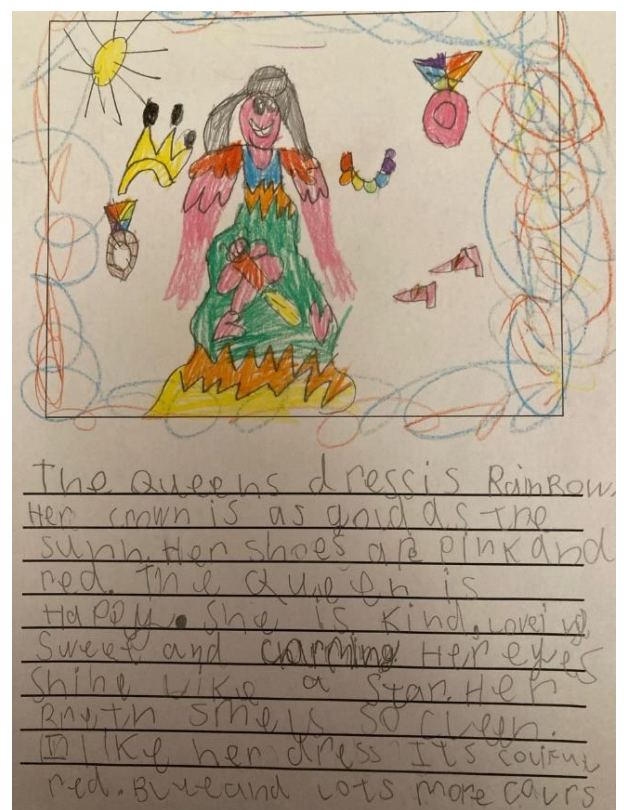 The Queens dress is RainBow.
Her crown is as gold as The
sunn. Her shoes are pink and
red. The Queen is
Happy. She is Kind. Loveing
Sweet and charming Her eyes
Shine Like a Star. Her
Breth smells so cleen.
I like her dress Its coulful
red. Blue and Lots more coulrs